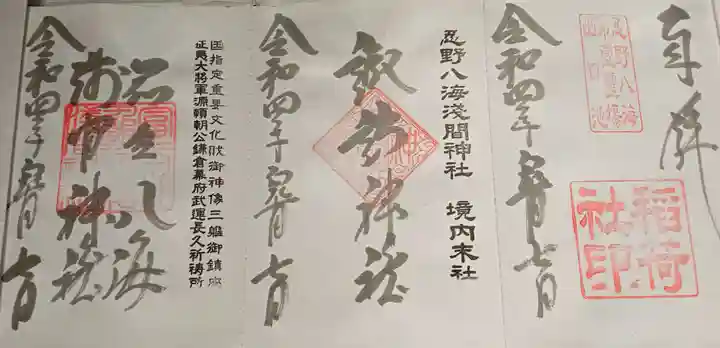 奉拝
忍野八海
出口池
稲荷
社印
令和四年
七日
忍野八海淺間神社 境内末社
神社
令和四年
七日
国指定重要文化財御神像三躰御鎮座
大将軍源頼朝公鎌倉幕府武運長久祈祷所
忍野八海
浅間神社
令和四年
七日